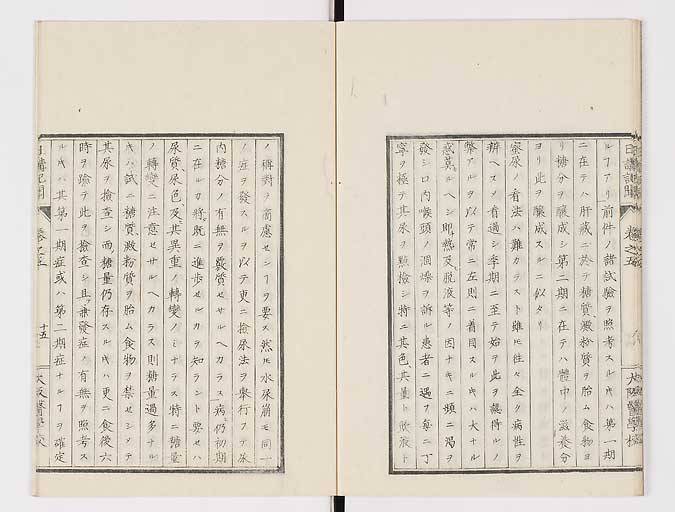 ルヿアリ前件ノ諸試驗ヲ照考スルキハ第一期
ニ在テハ肝藏ニ於テ糖質、澱粉質ヲ胎ム食物ヨ
リ糖分ヲ釀成シ第二期ニ在テハ體中ノ滋養分
ヨリ此ヲ釀成スルニ似タリ
蜜尿ノ看法ハ難カラスト雖ヒ徃々全ク病性ヲ
辨ヘスメ看過シ季期ニ至テ始ヲ此ヲ識得ルノ
弊アルヲ以テ常ニ左則ニ着目スルキハ大ナル
惑莫ルヘシ即熱及脫液等ノ因ナキニ頻ニ渴ヲ
發シロ内喉頭ノ涸燥ヲ訴ル患者ニ遇フ每ニ丁
寧ヲ極テ其尿ヲ照檢シ特ニ其色、其量ト飮液ト
日講記聞
卷之五
大阪醫學校
ノ稱對ヲ商慮センヿヲ要ス然ヒ水尿崩モ同一
ノ症ヲ發スルヲ以テ更ニ檢尿法ヲ擧行シテ尿
内糖分ノ有無ヲ質セサルヘカラス病仍初期
ニ在ルカ將既ニ進歩セルカヲ知ラント要セハ
尿質、尿色、及其異重ノ轉變ノミナラス特ニ糖量
ノ轉變ニ注意セサルヘカラス則糖量過多ナル
キハ試ニ糖質、澱粉質ヲ胎ム食物ヲ禁セシメテ
其尿ヲ檢査シ而糖量仍存スルキハ更ニ食後六
時ヲ踰テ此ヲ檢査シ且兼發症ノ有無ヲ照考ス
ルキハ其第一期症或ハ第二期症ナルヿヲ確定
日講記聞
卷之五
十五
大阪醫學校